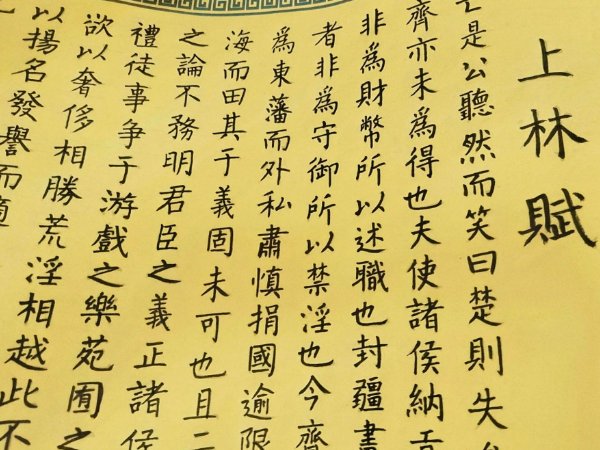 上林賦
亡是公聽然而笑曰楚則失
齊亦未為得也夫使諸侯納
非為財幣所以述職也封疆畫
者非為守御所以禁淫也今齊
為東藩而外私肅慎捐國逾限
海而田其于義固未可也且二
之論不務明君臣之義正諸侯
禮徒事争于游戲之樂苑囿之
欲以奢侈相勝荒淫相越此不
以揚名發譽而適